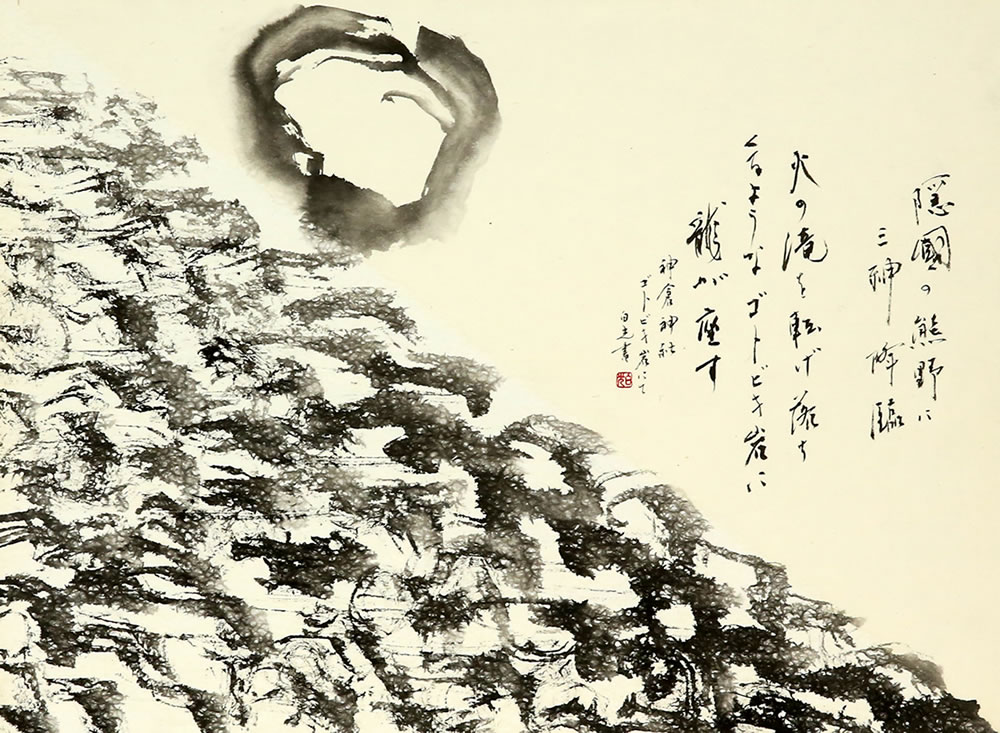 隠國の熊野に
三神降臨
火の滝を転げ落ち
くるようなゴトビキ岩に
龍が座す
神倉神社
ゴトビキ岩にて
白 書